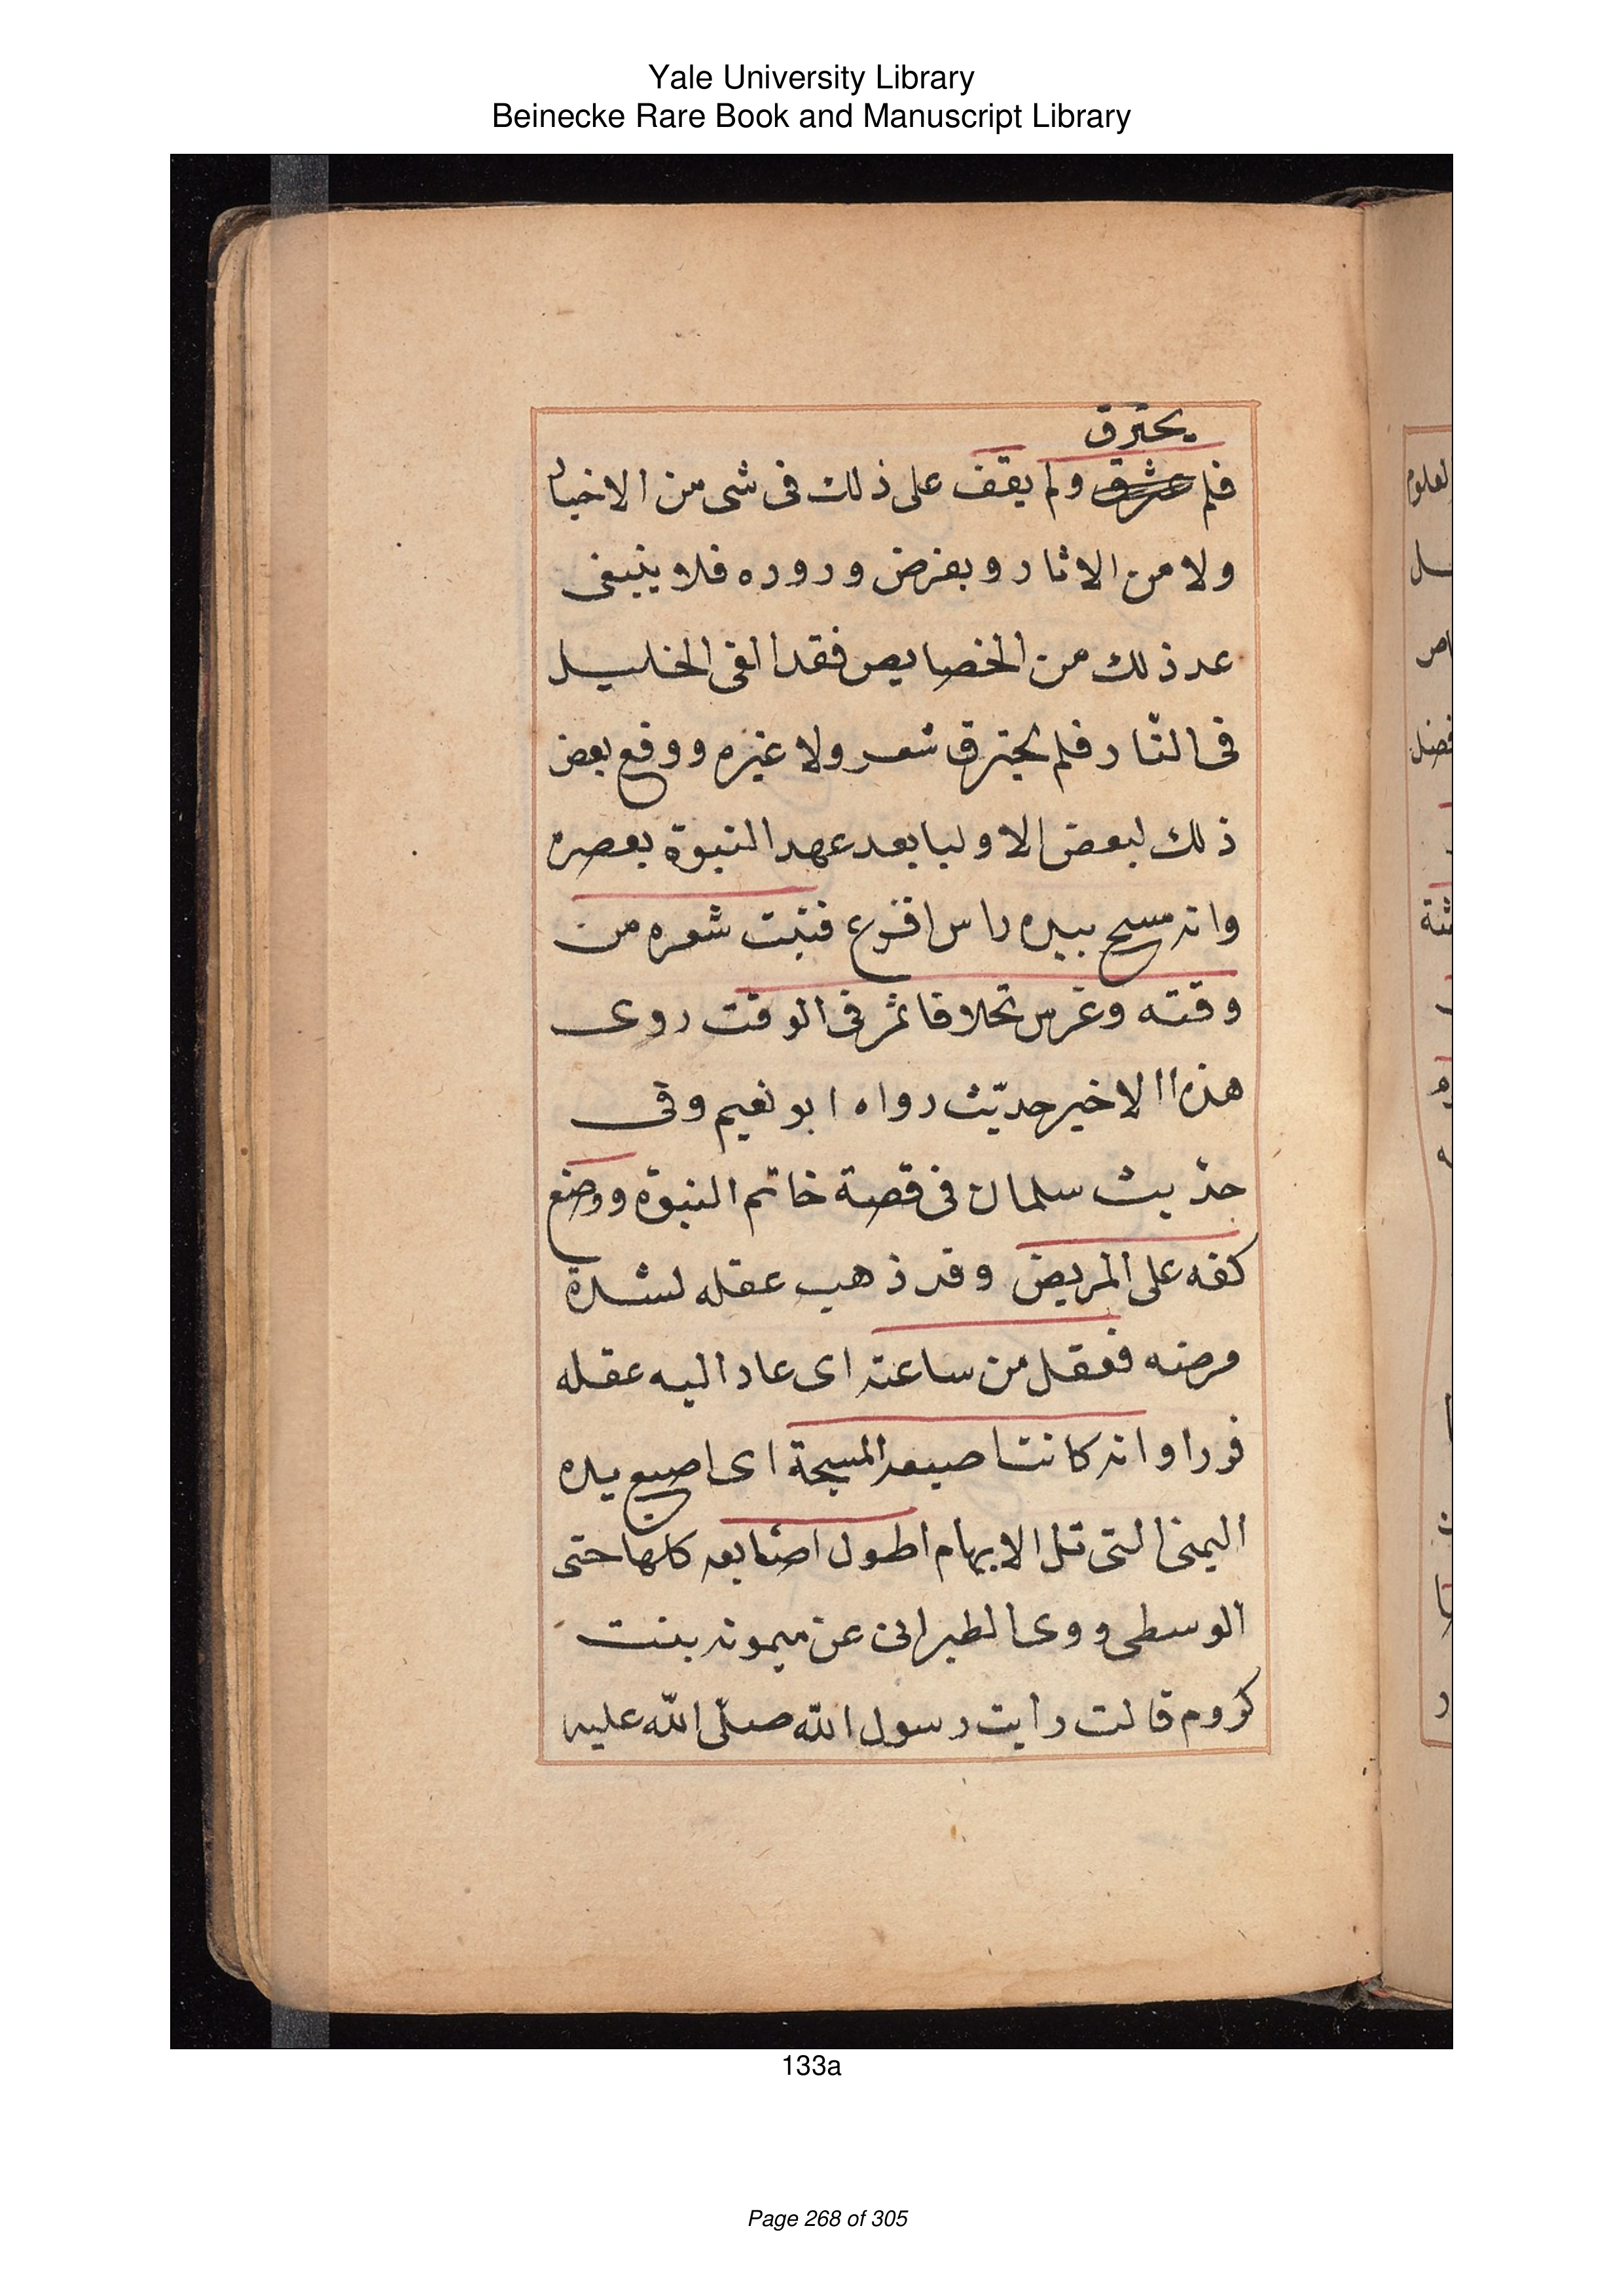 Yale University Library
Beinecke Rare Book and Manuscript Library
يحترق
فلم عشرق ولم يقف على ذلك فى شى من الاخبار
ولا من الاثار وبفرض وروده فلا ينبغى
عد ذلك من الخصايص فقد القى الخليل
فى النّار فلم يحترق شعر ولا غيره ووقع بعض
ذلك لبعض الاوليا بعد عهد النبوة بعصره
وانه مسح بيده راس اقرع فنبت شعره من
وقته وغرس نخلا فاثمر فى الوقت روى
هذا الاخير حديث رواه ابو نعيم وفى
حديث سلمان فى قصة خاتم النبوة ووضع
كفه على المريض وقد ذهب عقله لشدة
مرضه فعقل من ساعته اى عاد اليه عقله
فورا وانه كانت اصبعه المسبحة اى اصبع يده
اليمنى التى تل الابهام اطول اصابعه كلها حتى
الوسطى ووى الطبرانى عن ميمونه بنت
كروم قالت رايت رسول الله صلّى الله عليه
133a
Page 268 of 305